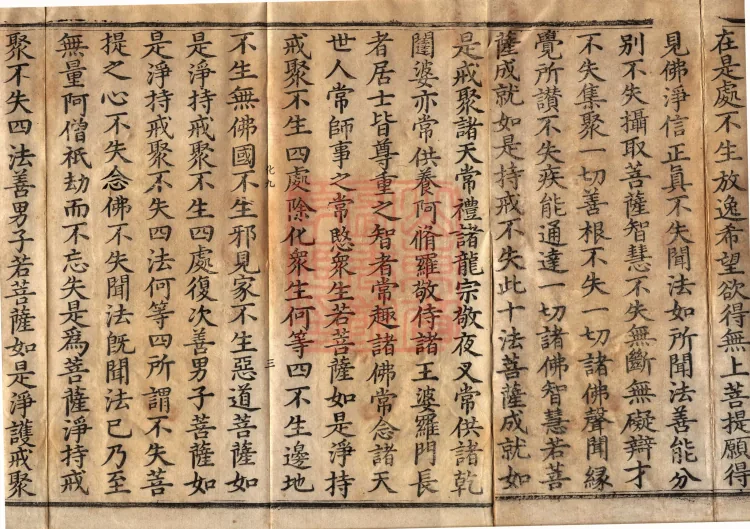 在是處不生放逸希望欲得無上菩提願得
見佛淨信正真不失聞法如所聞法善能分
別不失攝取菩薩智慧不失無斷無礙辯才
不失集聚一切善根不失一切諸佛聲聞緣
覺所讚不失疾能通達一切諸佛智慧若菩
薩成就如是持戒不失此十法菩薩成就如
是戒聚諸天常禮諸龍宗敬夜叉常供諸乾
闥婆亦常供養阿脩羅敬侍諸王婆羅門長
者居士皆尊重之智者常趣諸佛常念諸天
世人常師事之常愍衆生若菩薩如是淨持
戒聚不生四處除化衆生何等四不生邊地
化九 三
不生無佛國不生邪見家不生惡道菩薩如
是淨持戒聚不生四處復次善男子菩薩如
是淨持戒聚不失四法何等四所謂不失菩
提之心不失念佛不失聞法既聞法已乃至
無量阿僧祇劫而不忘失是為菩薩淨持戒
聚不失四法善男子若菩薩如是淨護戒聚